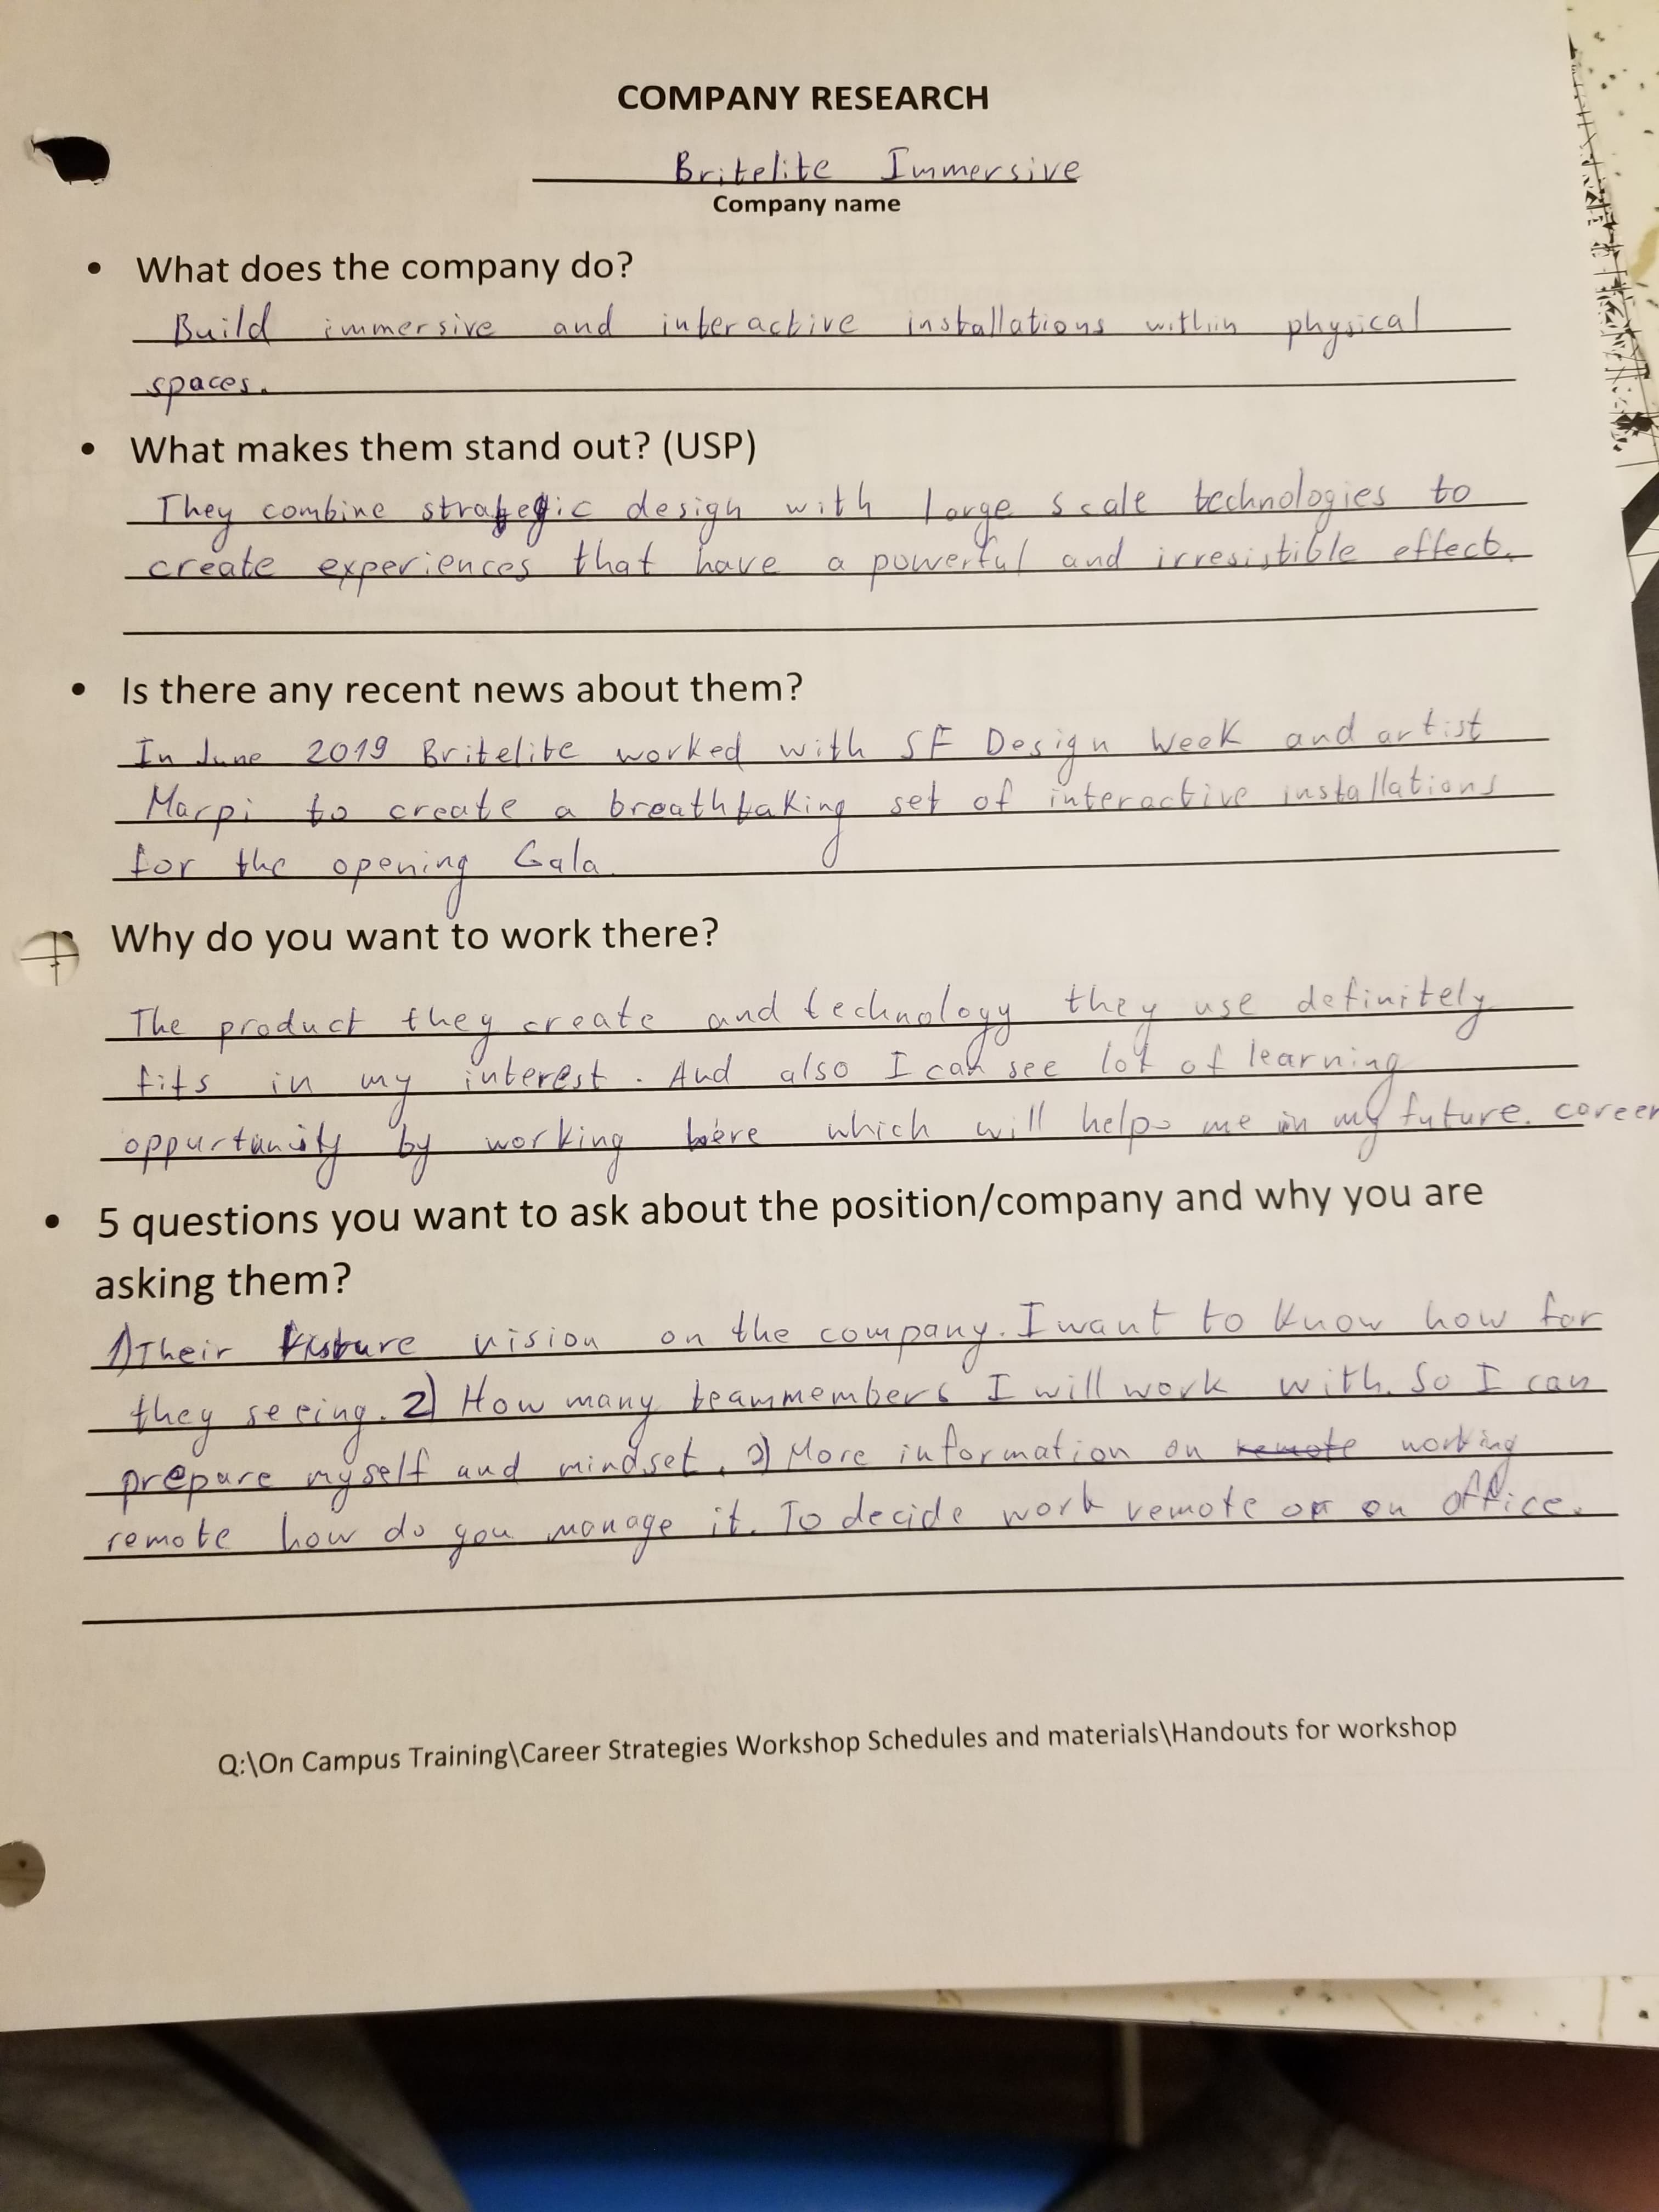 COMPANY RESEARCH
Britelite Immersive
Company name
• What does the company do?
Build immersive and interactive installations within physical
spaces.
• What makes them stand out? (USP)
They combine strategic design with large scale technologies to
create experiences that have a powerful and irresistible effect.
• Is there any recent news about them?
In June 2019 Britelite worked with SF Design Week and artist
Marpi to create a breathtaking set of interactive installations
for the opening Gala.
• Why do you want to work there?
The product they create and technology they use definitely
fits in my interest. And also I can see lot of learning
oppurtunity by working here which will help me in my future. career
• 5 questions you want to ask about the position/company and why you are
asking them?
1) Their future vision on the company. I want to know how far
they seeing. 2) How many teammembers I will work with. So I can
prepare myself and mindset. 3) More information on remote working
remote how do you manage it. To decide work remote or on office.
Q:\On Campus Training\Career Strategies Workshop Schedules and materials\Handouts for workshop